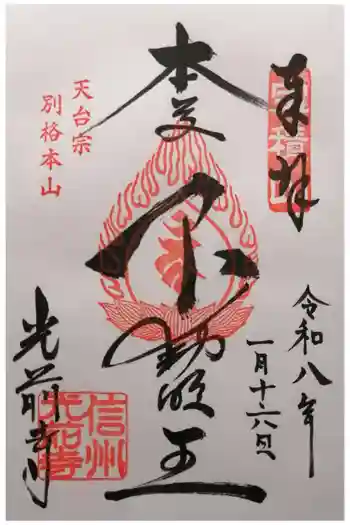 奉拝
寶積山
令和八年
一月十六日
本尊
不動明王
天台宗
別格本山
光前寺
信州
光前寺